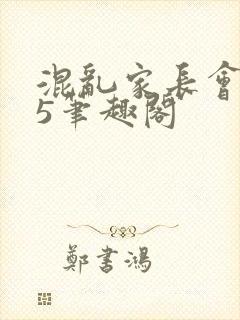 混亂家長會
5筆趣閣
鄭書鴻